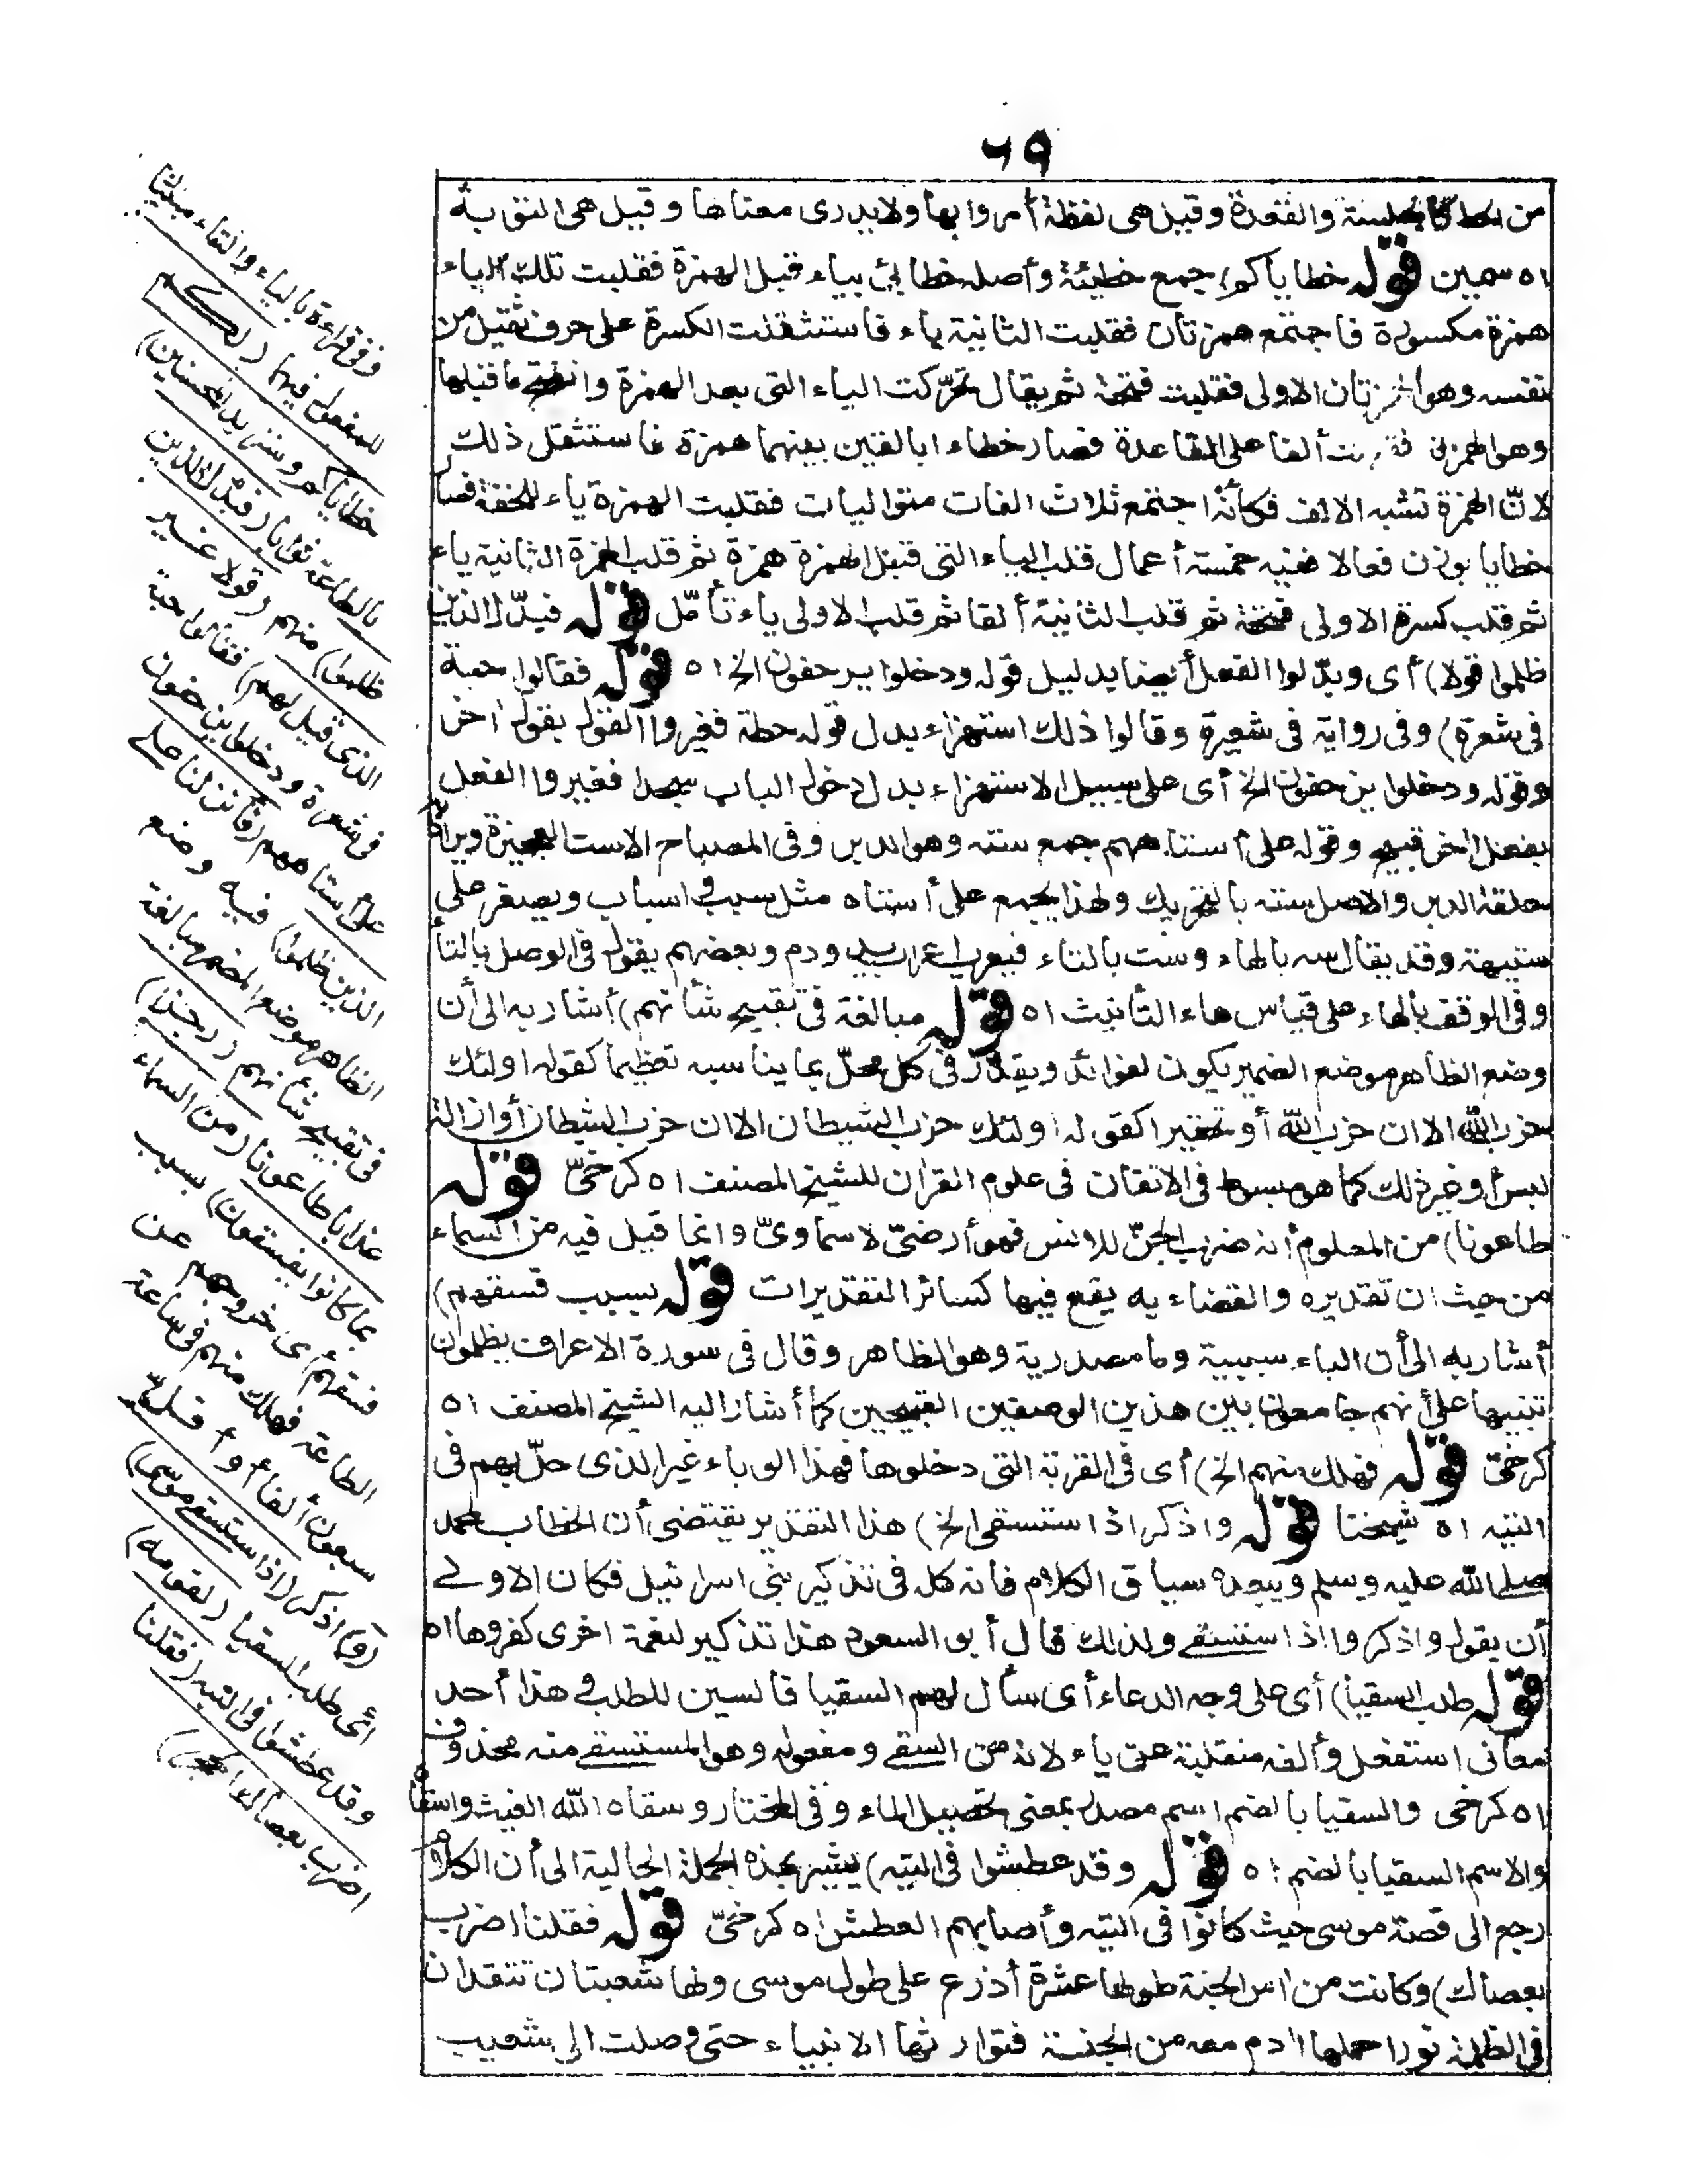 ٦٩
من الحط كالجلسة والقعدة وقيل هي لفظة أمروا بها ولا يدرى معناها وقيل هي التوبة
اه سمين قوله خطاياكم) جمع خطيئة وأصله خطايئ بياء قبل الهمزة فقلبت تلك الياء
همزة مكسورة فاجتمع همزتان فقلبت الثانية ياء فاستثقلت الكسرة على حرف ثقيل من
نفسه وهو الهمزتان الاولى فقلبت فتحة ثم يقال تحرّكت الياء التى بعد الهمزة وانفتح ما قبلها
وهو الهمزة فقلبت ألفا على القاعدة فصار خطاءا بالفين بينهما همزة فاستثقل ذلك
لانّ الهمزة تشبه الالف فكأنه اجتمع ثلاث الفات متواليات فقلبت الهمزة ياء للخفة فصار
خطايا بوزن فعالا ففيه خمسة أعمال قلب الياء التى قبل الهمزة همزة ثم قلب الهمزة الثانية ياء
ثم قلب كسرة الاولى فتحة ثم قلب الثانية ألفا ثم قلب الاولى ياء تأمّل قوله فبدّل الذين
ظلموا قولا) أى وبدّلوا الفعل أيضا بدليل قوله ودخلوا يزحفون الخ اه قوله فقالوا حبة
فى شعرة) وفى رواية فى شعيرة وقالوا ذلك استهزاء بدل قوله حطة فغيروا القول بقول اخر
وقوله ودخلوا يزحفون الخ أى على سبيل الاستهزاء بدل دخول الباب سجدا فغيروا الفعل
بفعل اخر قبيح وقوله على أستاههم جمع سته وهو الدبر وفى المصباح الاست العجيزة ويراد
حلقة الدبر والاصل سته بالتحريك ولهذا يجمع على أستاه مثل سبب واسباب ويصغر على
ستيهة وقد يقال سه بالهاء وست بالتاء فيعرب اعراب يد ودم وبعضهم يقول فى الوصل بالتاء
وفى الوقف بالهاء على قياس هاء التأنيث اه قوله مبالغة فى تقبيح شأنهم) أشار به الى أن
وضع الظاهر موضع الضمير يكون لفوائد ويقدّر فى كل محلّ بما يناسبه تعظيما كقوله اولئك
حزب الله الا ان حزب الله أو تحقيرا كقوله اولئك حزب الشيطان الا ان حزب الشيطان أو ازالة
لبس أو غير ذلك كما هو مبسوط فى الاتقان فى علوم القران للشيخ المصنف اه كرخىّ قوله
طاعونا) من المعلوم أنه ضرب الجنّ للانس فهو أرضىّ لا سماوىّ وانما قيل فيه من السماء
من حيث ان تقديره والقضاء به يقع فيها كسائر التقديرات قوله بسبب فسقهم)
أشار به الى أن الباء سببية وما مصدرية وهو الظاهر وقال فى سورة الاعراف يظلمون
تنبيها على أنهم جامعون بين هذين الوصفين القبيحين كما أشار اليه الشيخ المصنف اه
كرخىّ قوله فهلك منهم الخ) أى فى القرية التى دخلوها فهذا الوباء غير الذى حلّ بهم فى
التيه اه شيخنا قوله واذكر اذا ستسقى الخ) هذا التقدير يقتضى أن الخطاب لمحمد
صلى الله عليه وسلم ويبعده سياق الكلام فانه كله فى تذكير بنى اسرائيل فكان الاولى
أن يقول واذكروا اذا ستسقى ولذلك قال أبو السعود هذا تذكير لنعمة اخرى كفروها اه
قوله طلب السقيا) أى على وجه الدعاء أى سأل لهم السقيا فالسين للطلب فى هذا أحد
معانى استفعل وألفه منقلبة عن ياء لانه من السقى ومفعوله وهو المستسقى منه محذوف
اه كرخى والسقيا بالضم اسم مصدر بمعنى تحصيل الماء وفى المختار وسقاه الله الغيث واسقاه
والاسم السقيا بالضم اه قوله وقد عطشوا فى التيه) يشير بهذه الجملة الحالية الى أن الكلام
رجع الى قصة موسى حيث كانوا فى التيه وأصابهم العطش اه كرخىّ قوله فقلنا اضرب
بعصاك) وكانت من اس الجنة طولها عشرة أذرع على طول موسى ولها شعبتان تتقدان
فى الظلمة نورا حملها ادم معه من الجنة فتوارثها الانبياء حتى وصلت الى شعيب
وفى قراءة بالياء والتاء مبنيا
للمفعول فيهما (لكم
خطاياكم وسنزيد المحسنين)
بالطاعة ثوابا (فبدّل الذين
ظلموا) منهم (قولا غير
الذى قيل لهم) فقالوا حبة
فى شعرة ودخلوا يزحفون
على أستاههم (فأنزلنا على
الذين ظلموا) فيه وضع
الظاهر موضع المضمر مبالغة
فى تقبيح شأنهم (رجزا)
عذابا طاعونا (من السماء
بما كانوا يفسقون) بسبب
فسقهم أى خروجهم عن
الطاعة فهلك منهم فى ساعة
سبعون ألفا أو أقل
(و) اذكر (اذ استسقى موسى)
أى طلب السقيا (لقومه)
وقد عطشوا فى التيه (فقلنا
اضرب بعصاك الحجر)